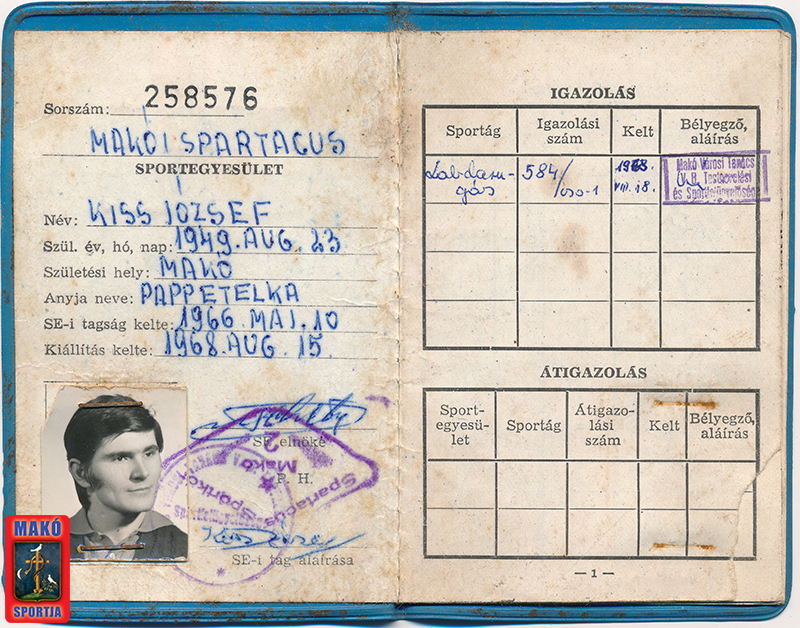 Sorszám: 258576
MAKÓI SPARTACUS
SPORTEGYESÜLET
Név: KISS JÓZSEF
Szül. év, hó, nap: 1949. AUG. 23
Születési hely: MAKÓ
Anyja neve: PAPP ETELKA
SE-i tagság kelte: 1966. MAJ. 10
Kiállítás kelte: 1968. AUG. 15.
SE elnöke
P. H.
Spartacus Sportkör
Makó
SE-i tag aláírása
MAKÓ
SPORTJA
IGAZOLÁS
Sportág Igazolási szám Kelt Bélyegző, aláírás
Labdarú- 584/ 1968
gás iso-1 VIII. 18.
Makó Városi Tanács
V. B. Testnevelési
és Sportfelügyelőség
ÁTIGAZOLÁS
Sport-egyesü-let Sportág Átigazo-lási szám Kelt Bélyegző, aláírás
— 1 —